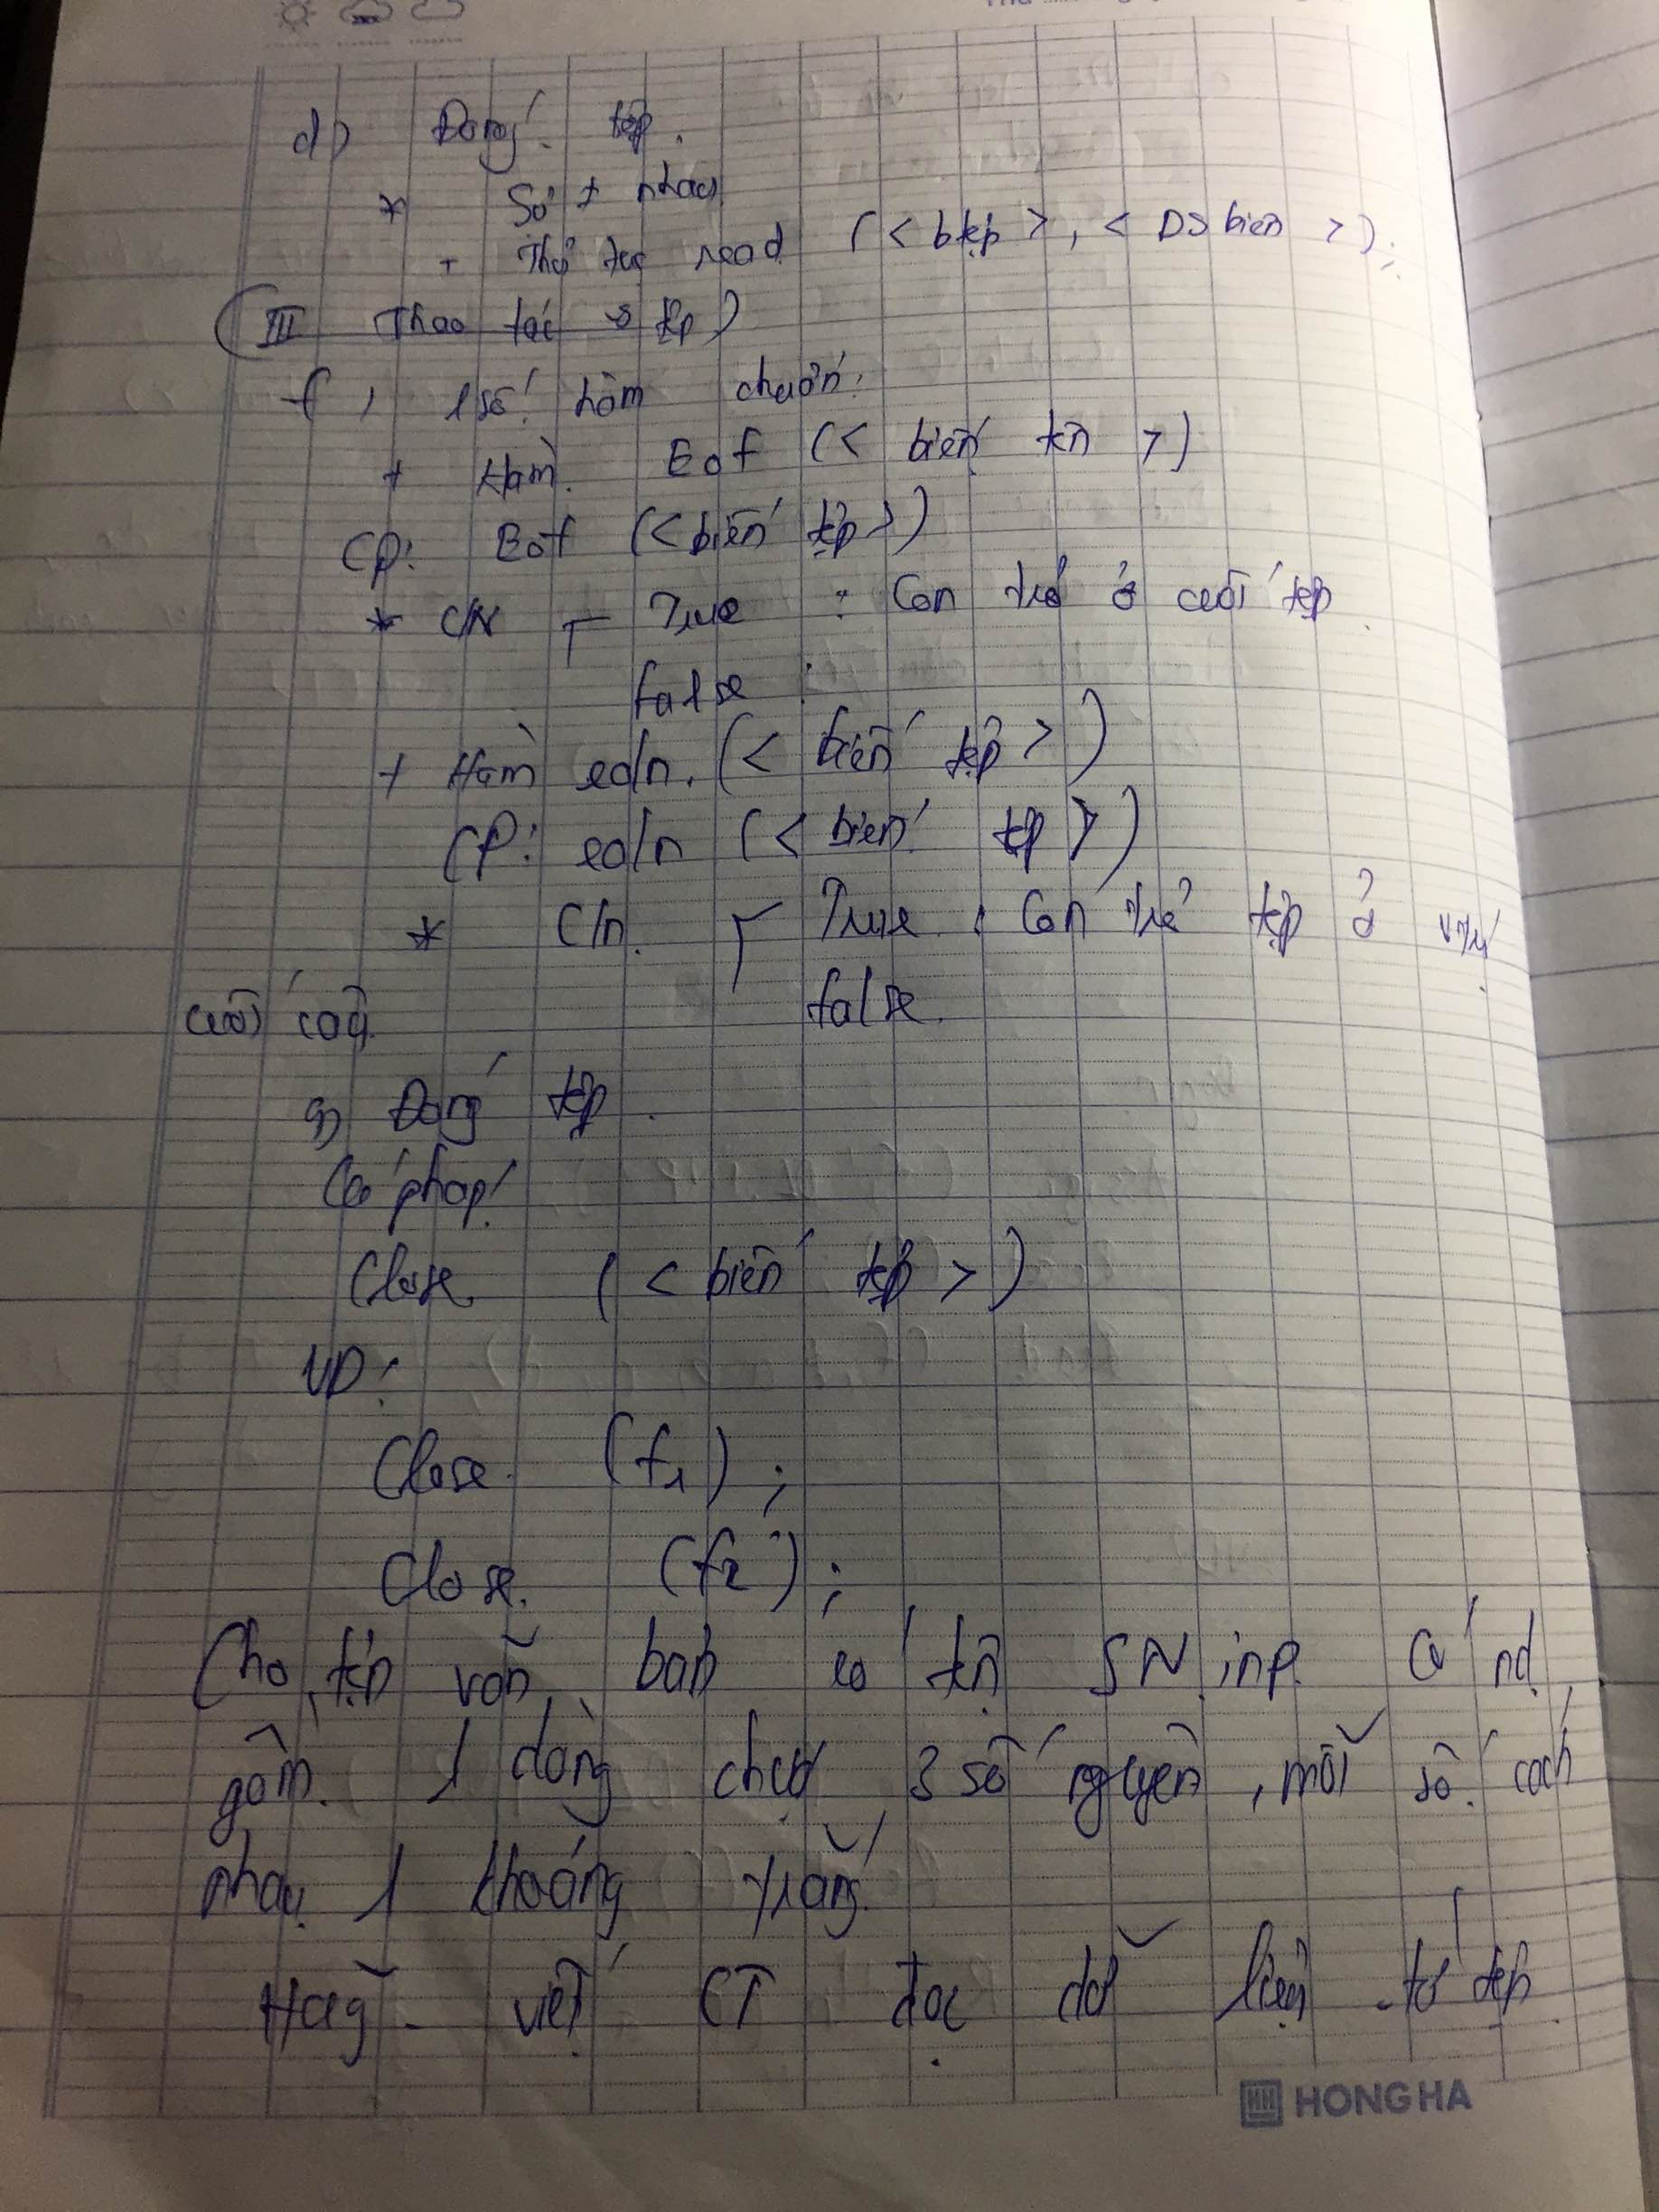 d) Đóng tệp.
*
+ Thủ tục read (< b tệp >, < DS biến >);
(III Thao tác tệp)
f) 1 số hàm chuẩn:
+ Hàm Eof (< biến tên >)
CP: Eof (< biến tệp >)
* C/N True : Con trỏ ở cuối tệp
false :
+ Hàm eoln. (< biến tệp >)
CP: eoln (< biến tệp >)
* C/n. True : Con trỏ tệp ở
cuối false.
g) Đóng tệp.
Cú pháp:
Close (< biến tệp >)
VD:
Close (f1);
Close. (f2);
Cho tệp văn bản có tên SN.inp. Có nd
gồm. 1 dòng chứa 3 số nguyên, mỗi số cách
nhau 1 khoảng trắng.
Hãy viết CT đọc dữ liệu từ tệp
HONG HA